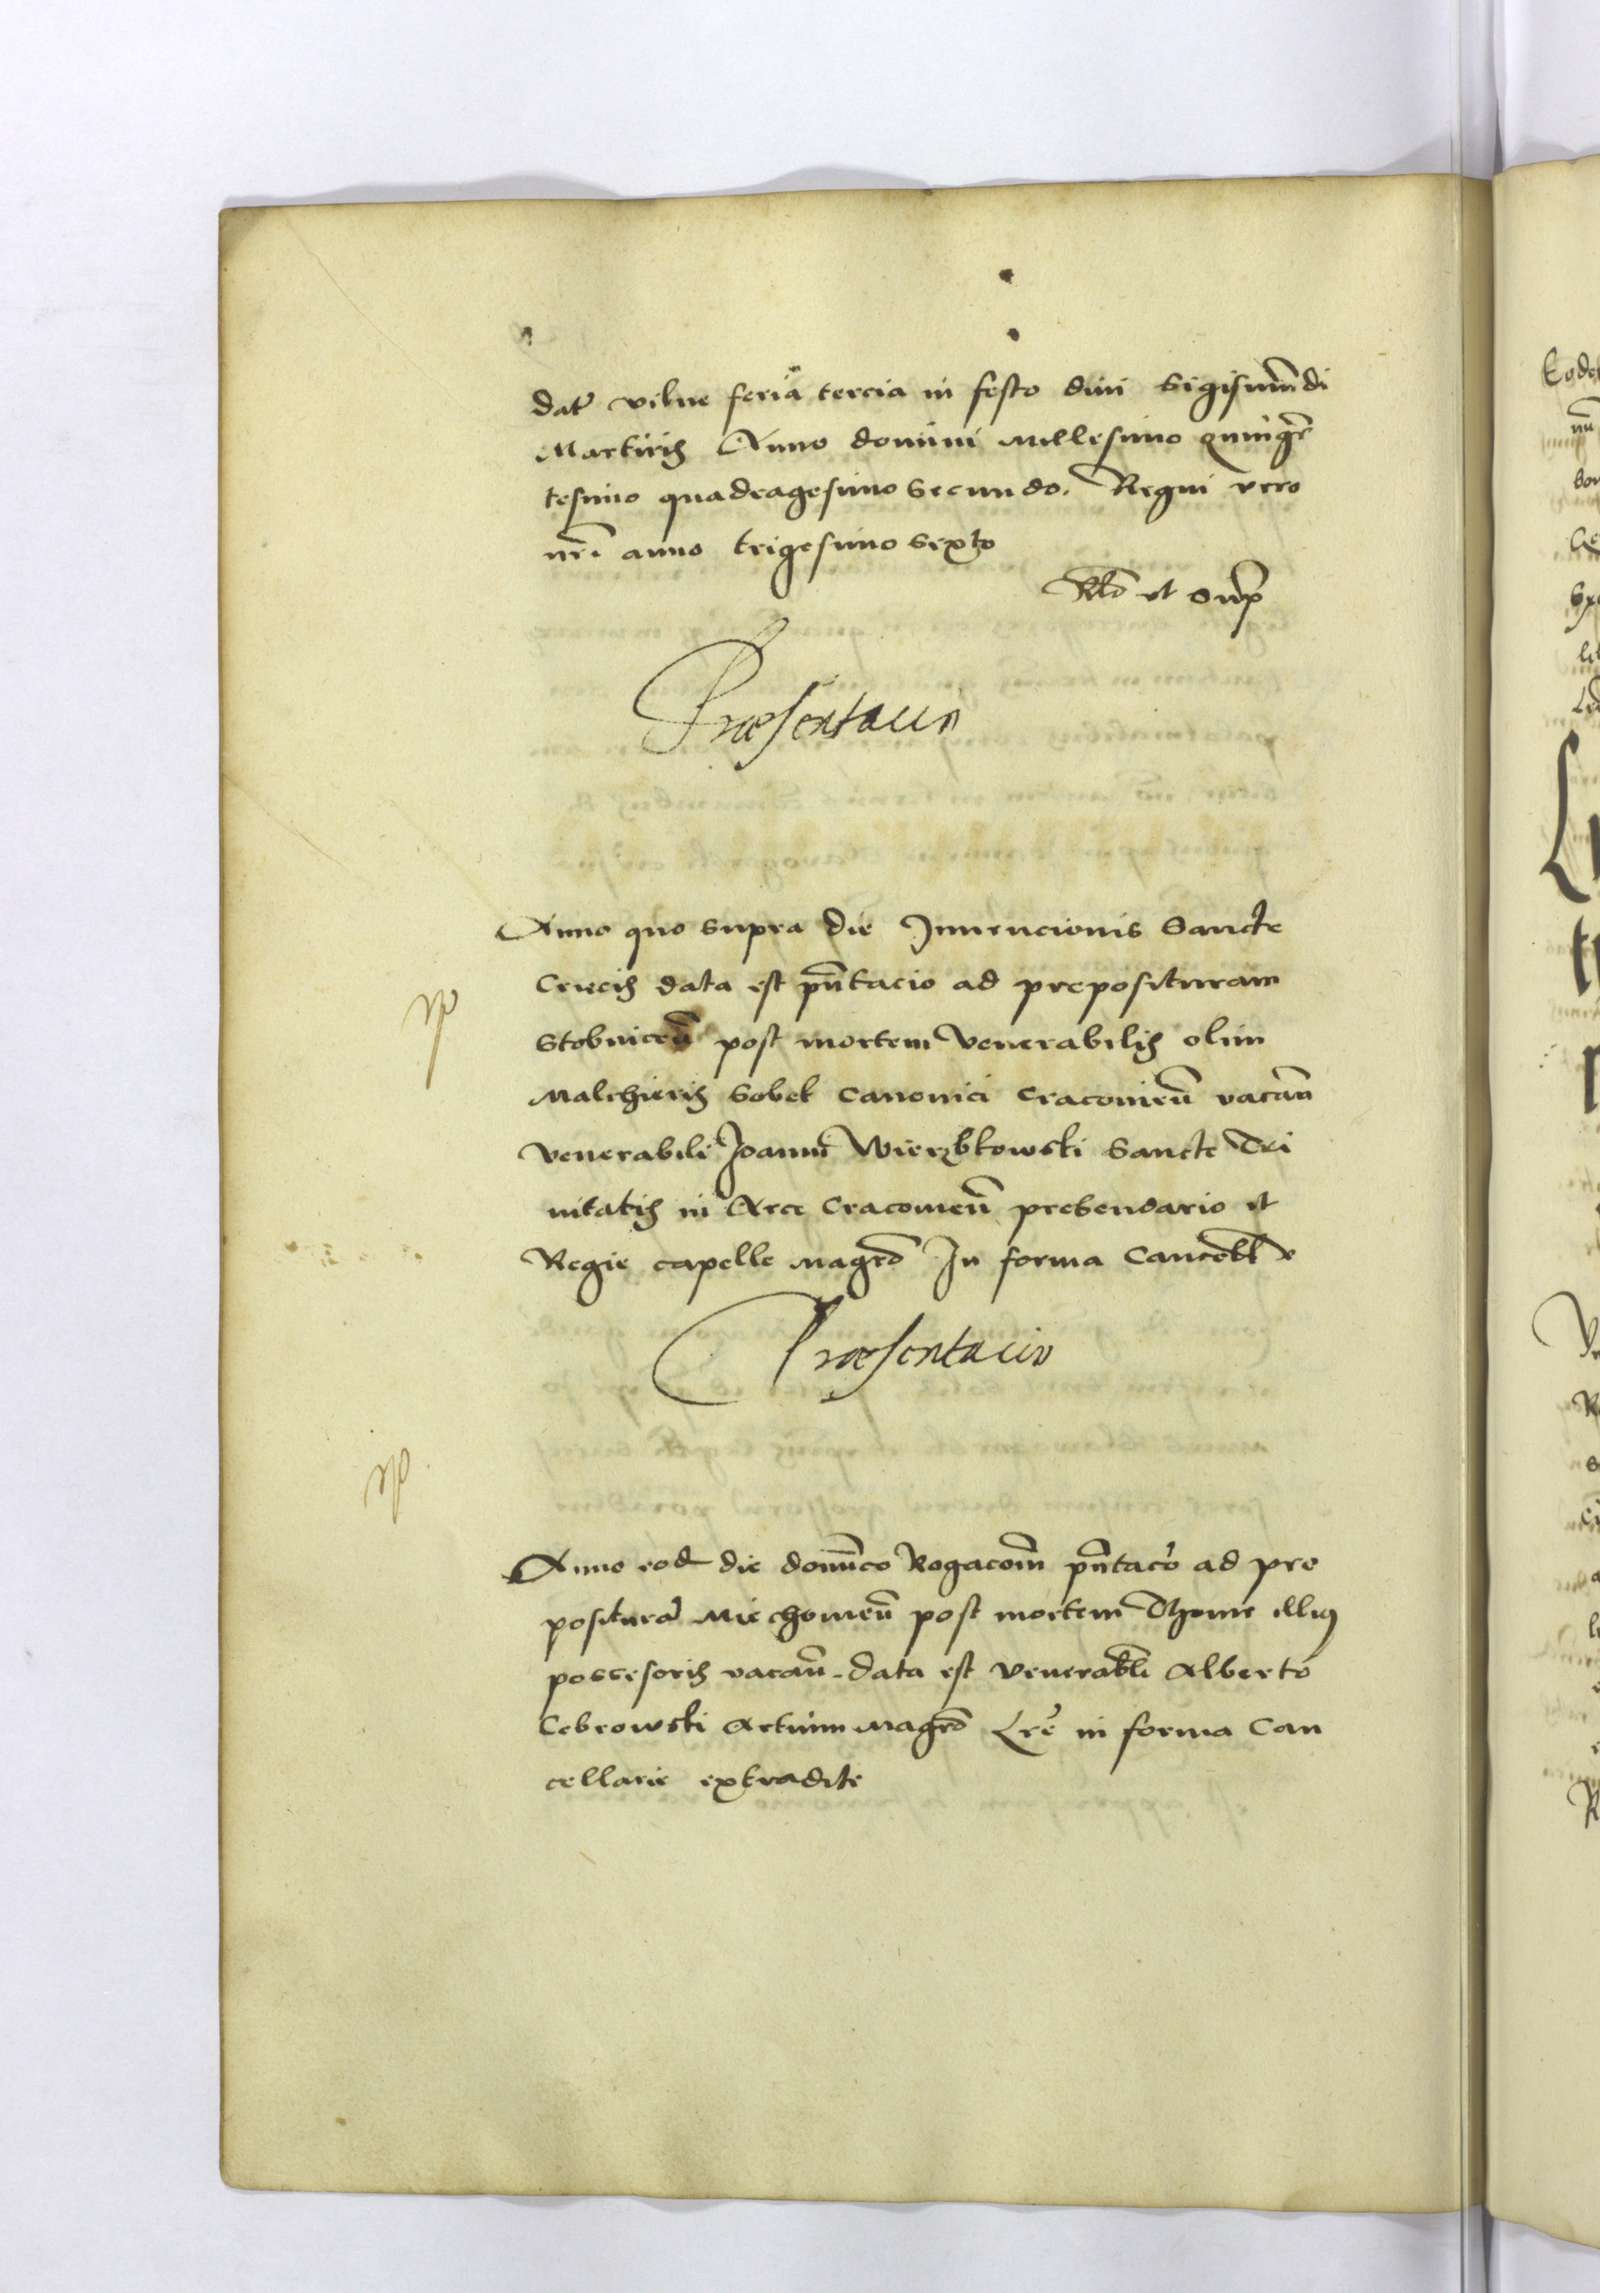 dat̃ vilne feria tercia in festo diui Sigismũdi
Martiris Anno domini Millesimo quingẽ
tesimo quadragesimo Secundo. Regni vero
nr̃i anno trigesimo sexto
Rlõ ut sup̃
Præsentacio
Anno quo supra die Inuencionis Sancte
Crucis data est pñtacio ad preposituram
Stobniceñ post mortem Venerabilis olim
Malchieris Sobek Canonici Cracouieñ vacañ
Venerabili Joanni Wierzbkowski Sancte Tri
nitatis in Arce Cracouieñ prebendario et
Regie capelle magrõ In forma Cancell
Præsentacio
Anno eod̃ die dominico Rogacom̃ pñtac̃o ad pre
positurã Miechouieñ post mortem Thome illius
possesoris vacañ data est Venerabli Alberto
Cebrowski Artium magrõ Lrẽ in forma Can
cellarie extradite